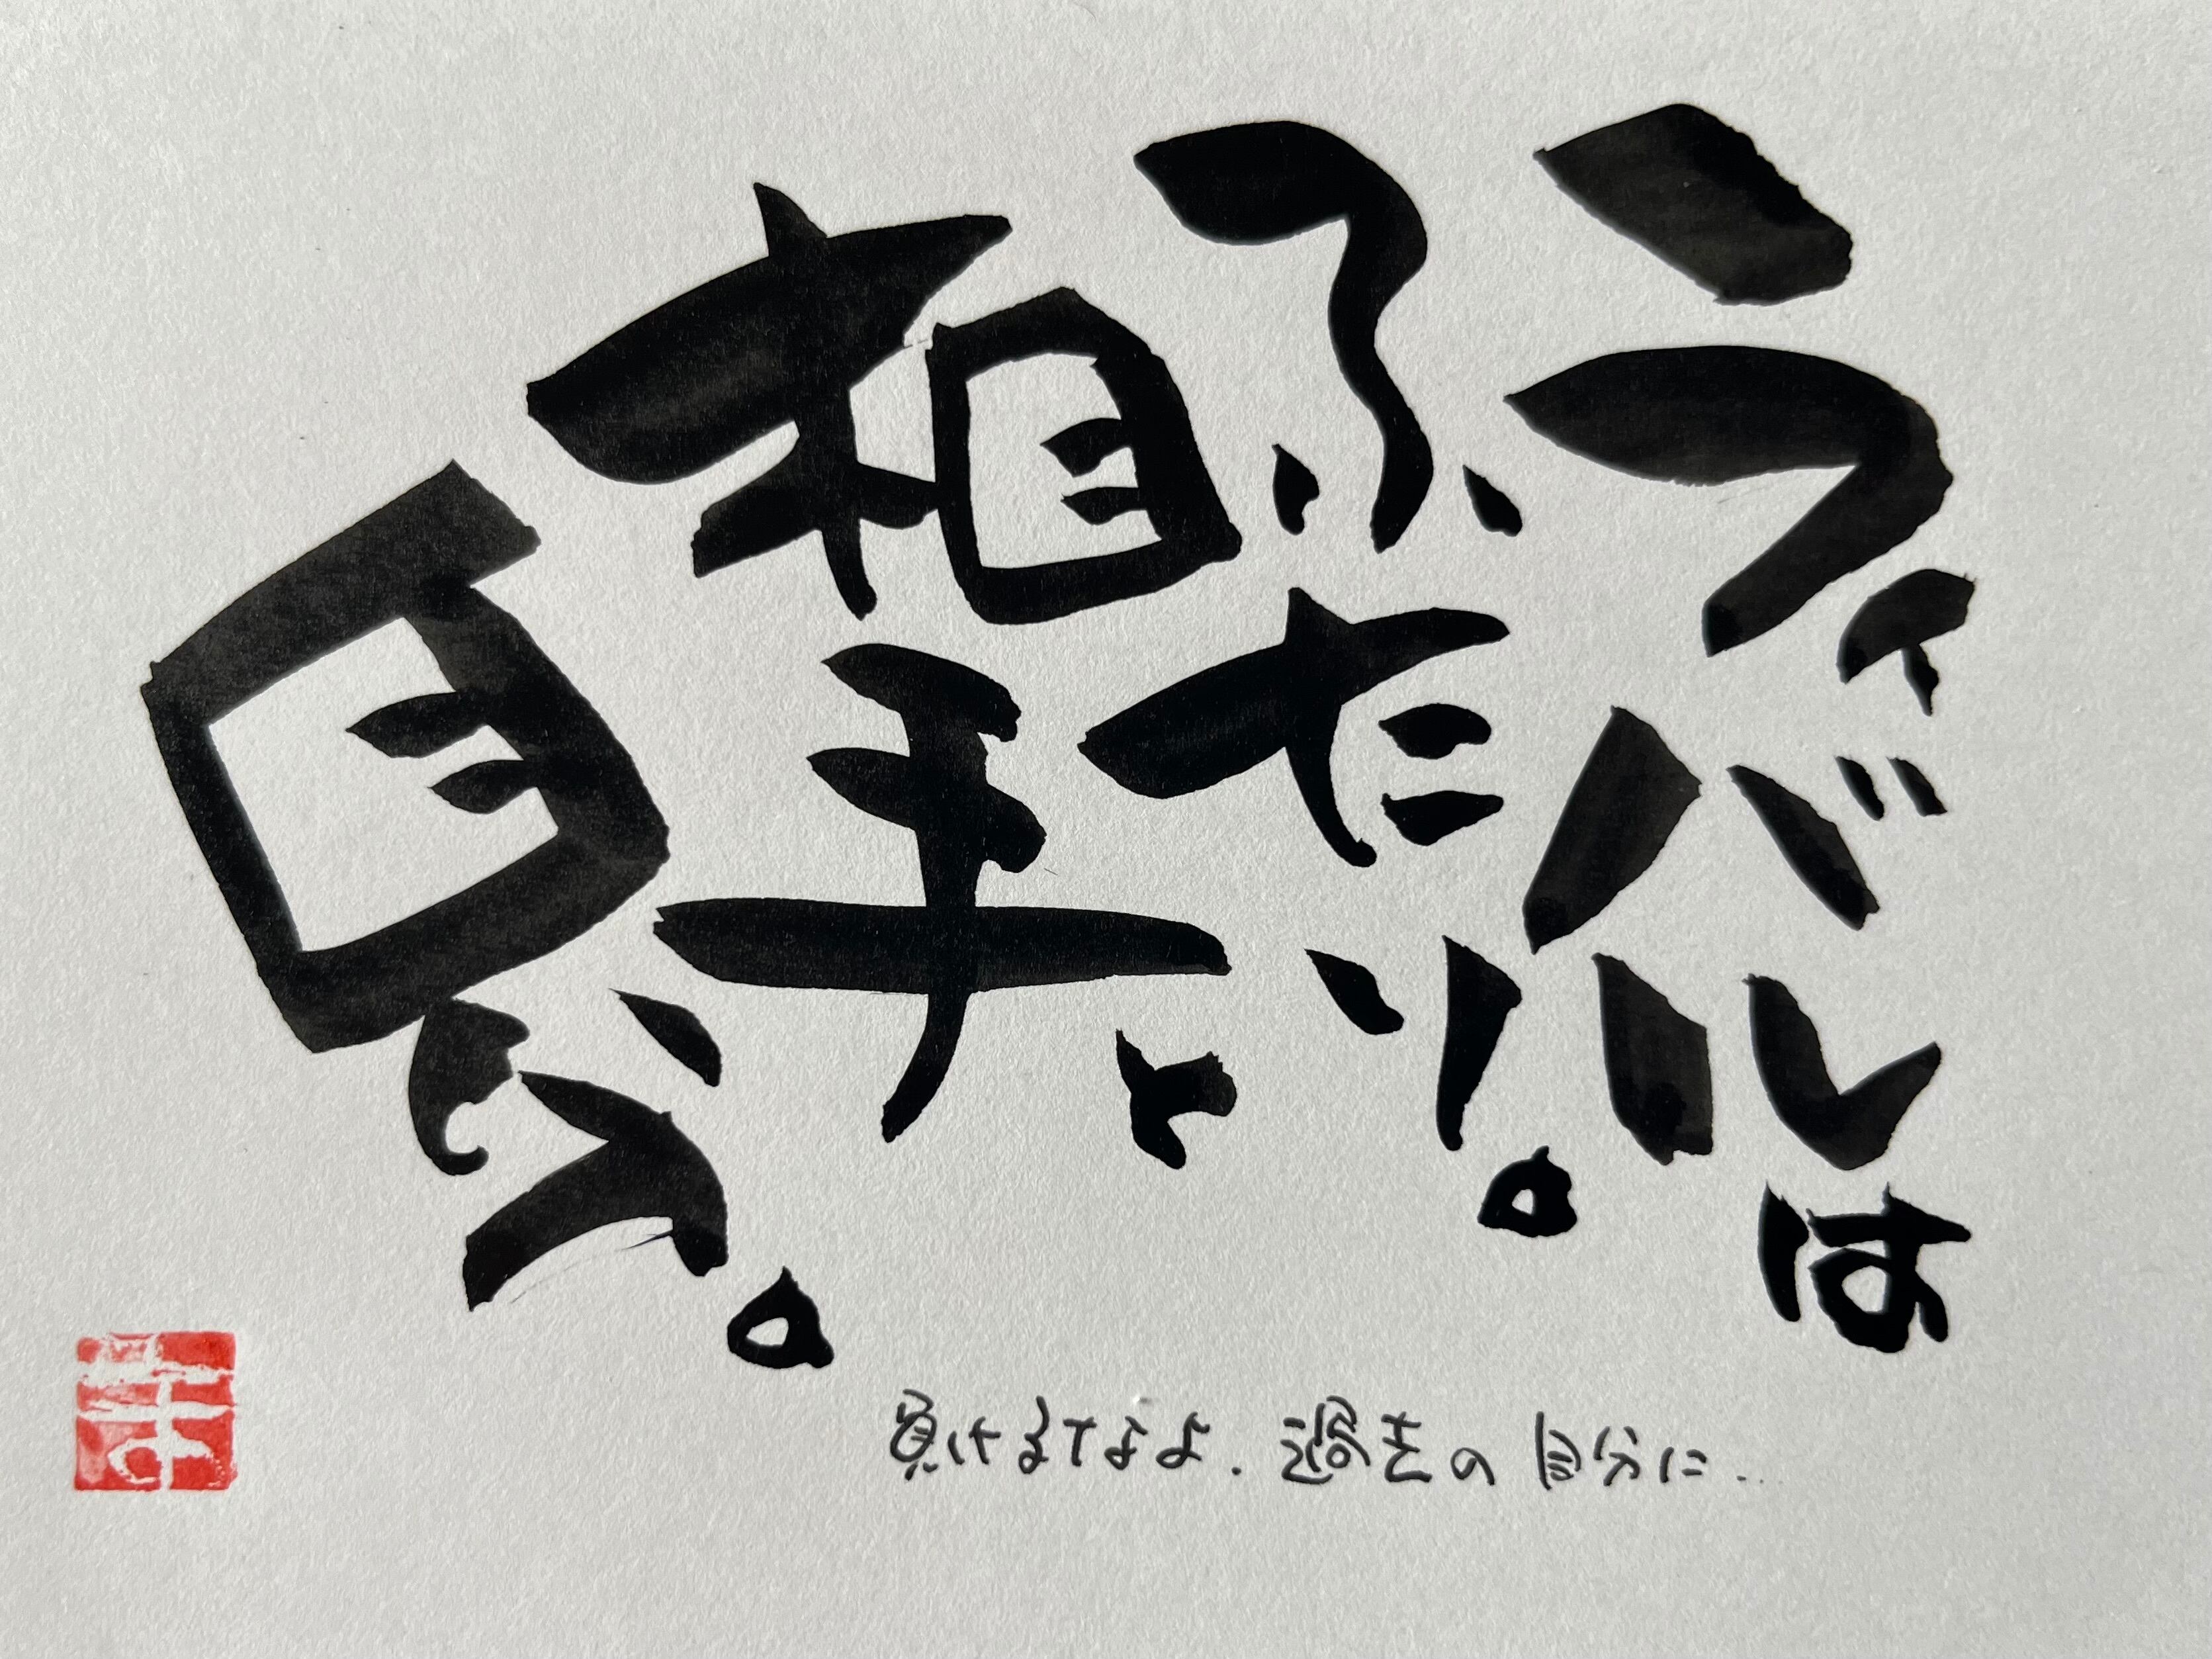 ライバルは
ふたり。
相手と
自分。
負けるなよ. 過去の自分に...